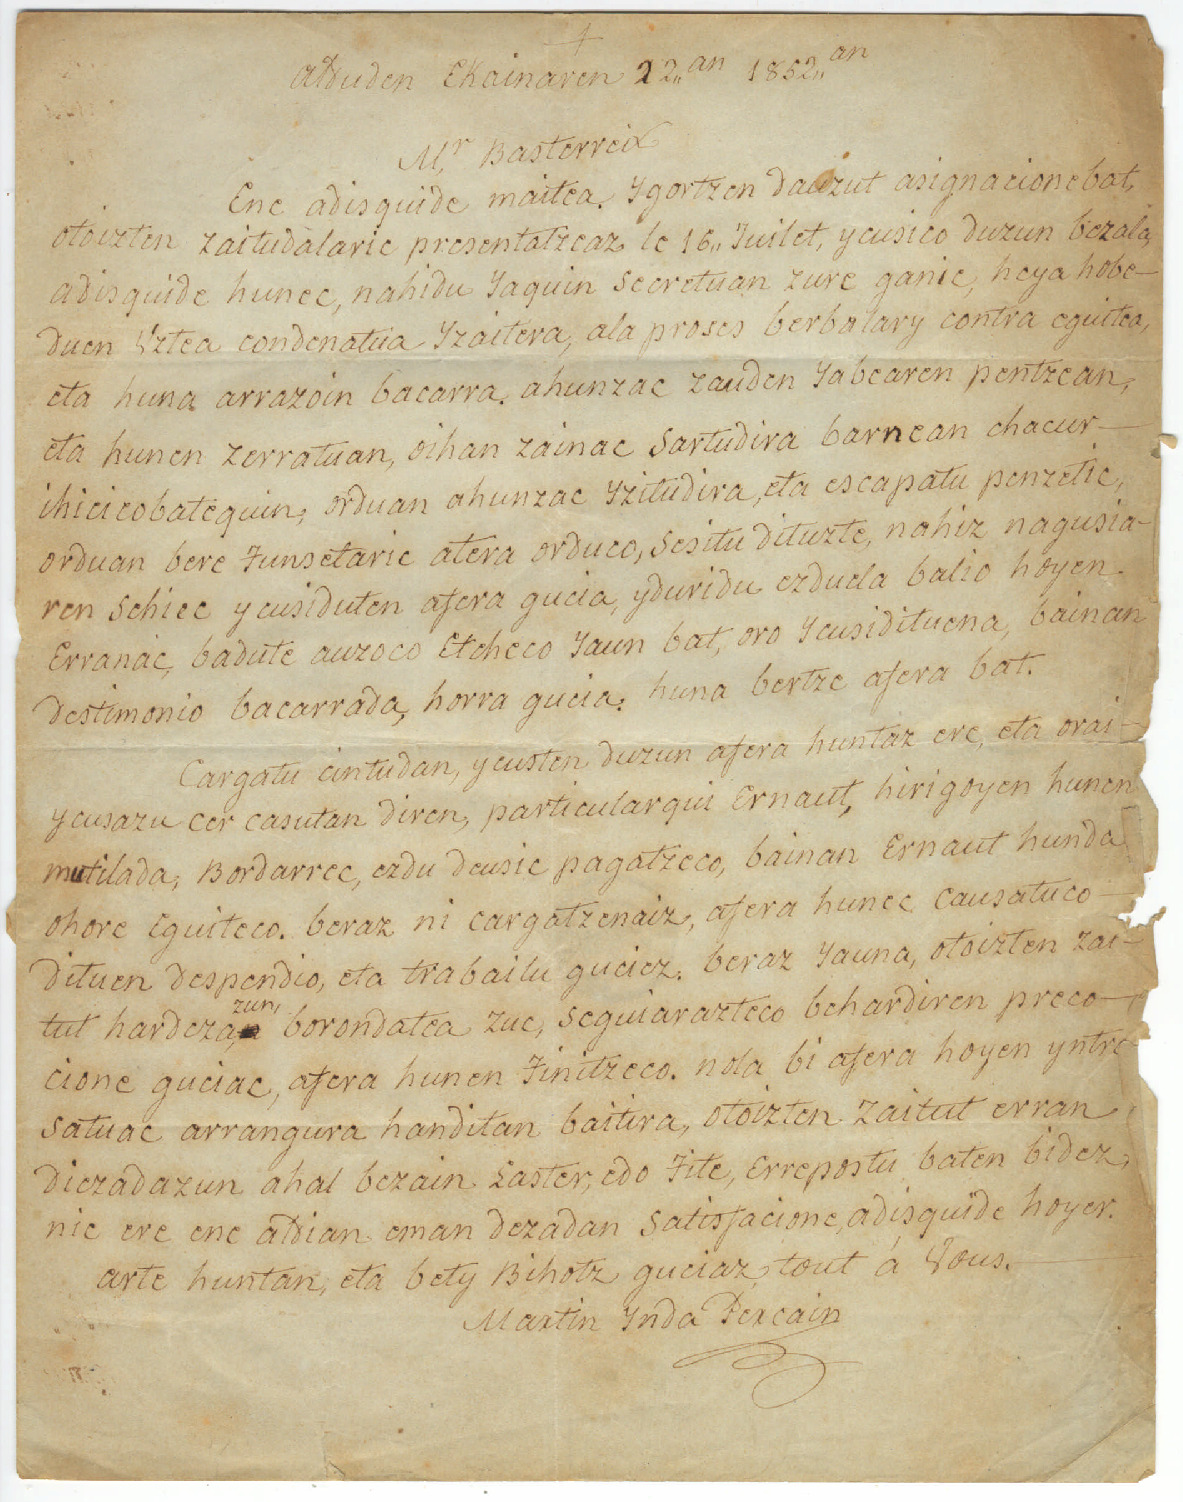 +
alduden Ekainaren 22,,an 1852,,an
Mr, Basterreix
Ene adisquide maitea. Ygortzen dauzut asignacionebat,
otoizten zaitudalaric presentatzeaz le 16,, Juilet, ycusico duzun bezala,
adisquide hunec, nahidu Jaquin secretuan zure ganic, heya hobe-
duen Uztea condenatua Yzaitera, ala proses berbalary contra eguitea,
eta huna arrazoin bacarra. ahunzac zauden Jabearen pentzean,
eta hunen zerratuan, oihan zainac sartudira barnean chacur-
ihicicobatequin; orduan ahunzac Yzitudira, eta escapatu penzetic,
orduan bere Funsetaric atera orduco, sesitu dituzte, nahiz nagusia-
ren sehiec ycusiduten afera gucia, yduridu ezduela balio hoyen
Erranac, badute auzoco Etcheco Jaun bat, oro Ycusidituena, bainan
destimonio bacarrada, horra gucia. huna bertze afera bat.
Cargatu cintudan, ycusten duzun afera huntaz ere, eta orai-
ycusazu cer casutan diren, particularqui Ernaut, hirigoyen hunen
mutilada, Bordarrec, ezdu deusic pagatzeco, bainan Ernaut hunda
ohore Eguiteco. beraz ni cargatzenaiz, afera hunec causatuco-
dituen despendio, eta trabailu guciez. beraz Jauna, otoizten zai-
zun,
tut hardeza borondatea zuc, seguiarazteco behardiren preco-
cione guciac, afera hunen Finitzeco. nola bi afera hoyen yntre-
satuac arrangura handitan baitira, otoizten zaitut erran
diezadazun ahal bezain Laster, edo Fite, Errepostu baten bidez,
nic ere ene aldian eman dezadan satisfacione, adisquide hoyer.
arte huntan, eta bety Bihotz guciaz, tout á Vous.
Martin Ynda Percain